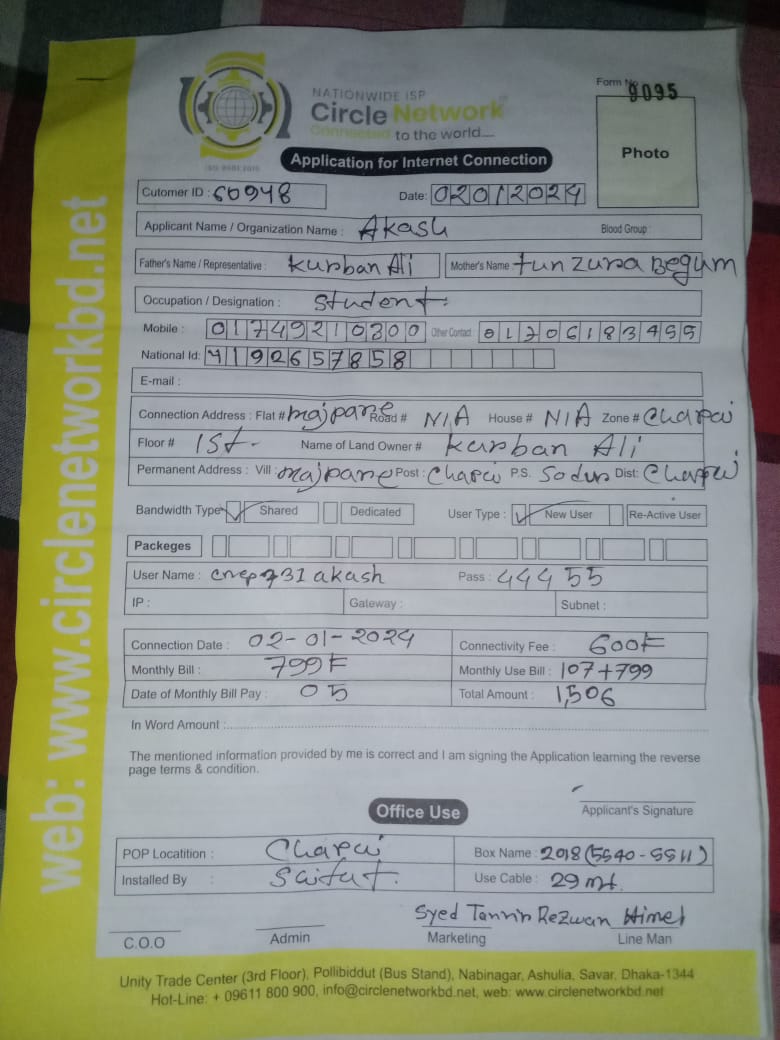 web: www.circlenetworkbd.net
NATIONWIDE ISP
Circle Network
Connected to the world....
ISO 9001:2015
Form No 9095
Photo
Application for Internet Connection
Cutomer ID : 60948 Date: 02012024
Applicant Name / Organization Name : Akash Blood Group :
Father's Name / Representative : Kurban Ali Mother's Name : tunzura Begum
Occupation / Designation : Student
Mobile : 01749210300 Other Contact : 01706183455
National Id: 4192657858
E-mail :
Connection Address : Flat # majpara Road # N/A House # N/A Zone # Chapai
Floor # 1st. Name of Land Owner # Kurban Ali
Permanent Address : Vill : majpara Post : Chapai P.S. Sodur Dist: Chapai
Bandwidth Type Shared Dedicated User Type : New User Re-Active User
Packeges
User Name : akash Pass : 44455
IP : Gateway : Subnet :
Connection Date : 02-01-2024 Connectivity Fee : 600
Monthly Bill : 799 Monthly Use Bill : 107+799
Date of Monthly Bill Pay : 05 Total Amount : 1,506
In Word Amount :
The mentioned information provided by me is correct and I am signing the Application learning the reverse
page terms & condition.
Applicant's Signature
Office Use
POP Locatition : Chapai Box Name : 2018 (5540-5511)
Installed By : Use Cable : 29 mt.
Syed Tanvir Rezwan Himel
C.O.O Admin Marketing Line Man
Unity Trade Center (3rd Floor), Pollibiddut (Bus Stand), Nabinagar, Ashulia, Savar, Dhaka-1344
Hot-Line: + 09611 800 900, info@circlenetworkbd.net, web: www.circlenetworkbd.net